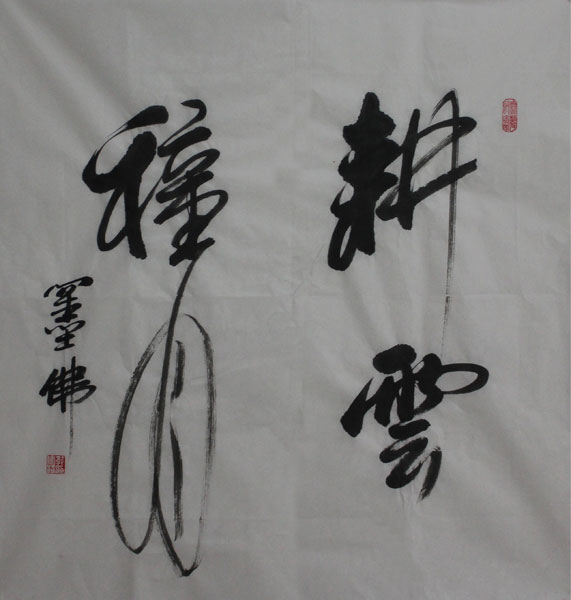 耕雲
種月
墨佛